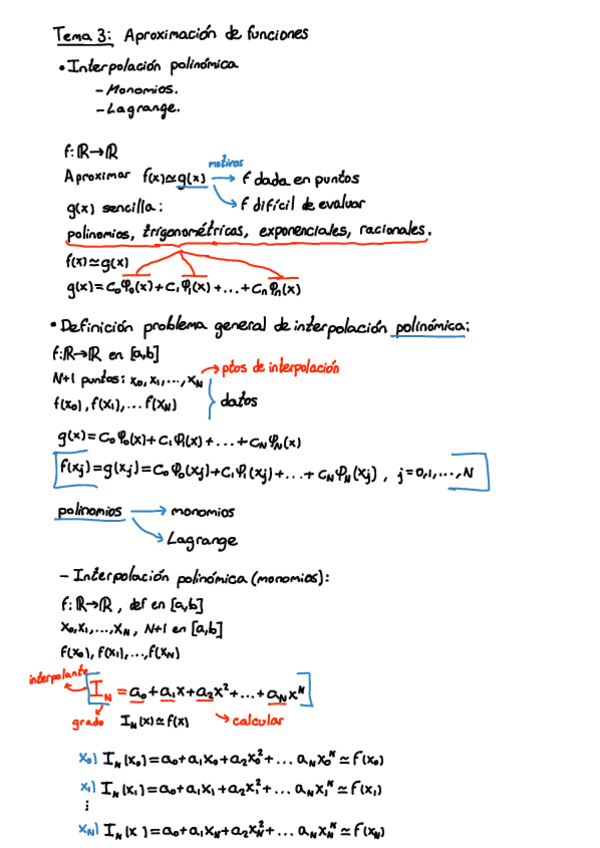 Tema 3: Aproximación de funciones
• Interpolación polinómica
- Monomios.
- Lagrange.
f: ℝ→ℝ
motivos
Aproximar f(x)≃g(x) → f dada en puntos
g(x) sencilla: → f difícil de evaluar
polinomios, trigonométricas, exponenciales, racionales.
f(x)≃g(x)
g(x)=C₀φ₀(x)+C₁φ₁(x)+...+Cₙφₙ(x)
• Definición problema general de interpolación polinómica:
f:ℝ→ℝ en [a,b]
→ ptos de interpolación
N+1 puntos: x₀,x₁,...,x_N
f(x₀), f(x₁),... f(x_N) } datos
g(x)=C₀φ₀(x)+C₁φ₁(x)+...+C_Nφ_N(x)
f(xⱼ)=g(xⱼ)=C₀φ₀(xⱼ)+C₁φ₁(xⱼ)+...+C_Nφ_N(xⱼ), j=0,1,...,N
polinomios → monomios
→ Lagrange
- Interpolación polinómica (monomios):
f: ℝ→ℝ, def en [a,b]
x₀,x₁,...,x_N, N+1 en [a,b]
f(x₀), f(x₁),...,f(x_N)
interpolante
I_N = a₀+a₁x+a₂x²+...+a_Nx^N
grado I_N(x)≃f(x) → calcular
x₀) I_N(x₀)=a₀+a₁x₀+a₂x₀²+... a_Nx₀^N≃f(x₀)
x₁) I_N(x₁)=a₀+a₁x₁+a₂x₁²+... a_Nx₁^N≃f(x₁)
⋮
x_N) I_N(x )=a₀+a₁x_N+a₂x_N²+... a_Nx_N^N≃f(x_N)